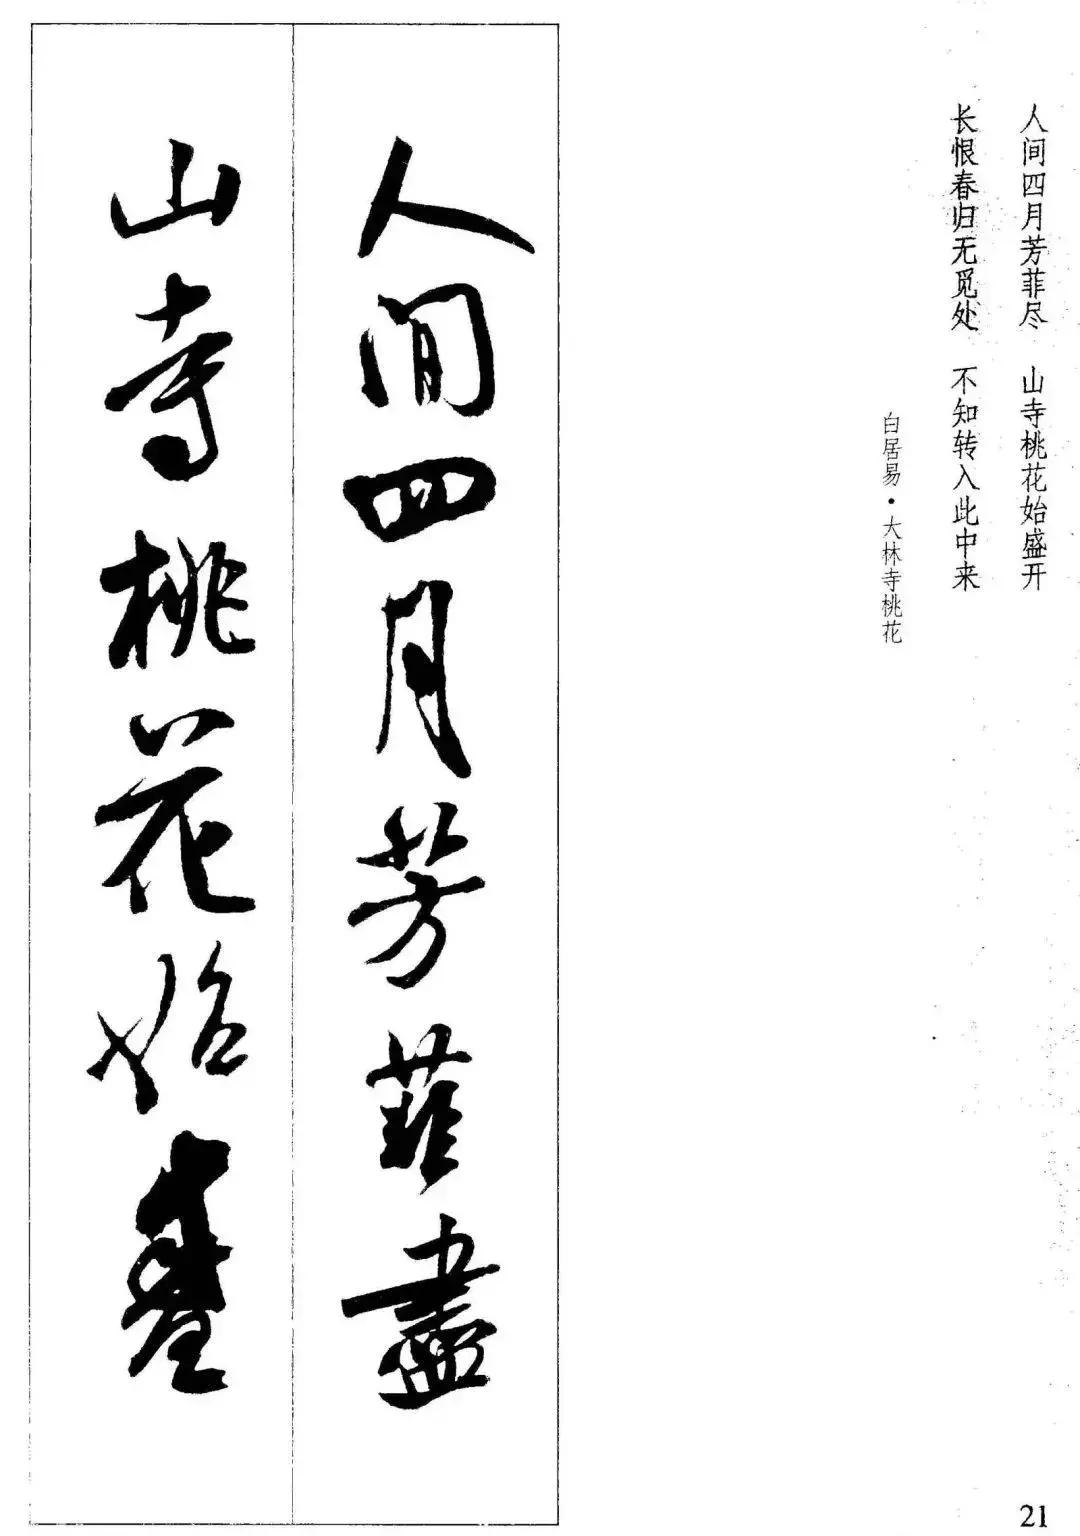 人间四月芳菲尽 山寺桃花始盛开
长恨春归无觅处 不知转入此中来
白居易·大林寺桃花
人間四月芳菲盡
山寺桃花始盛
21